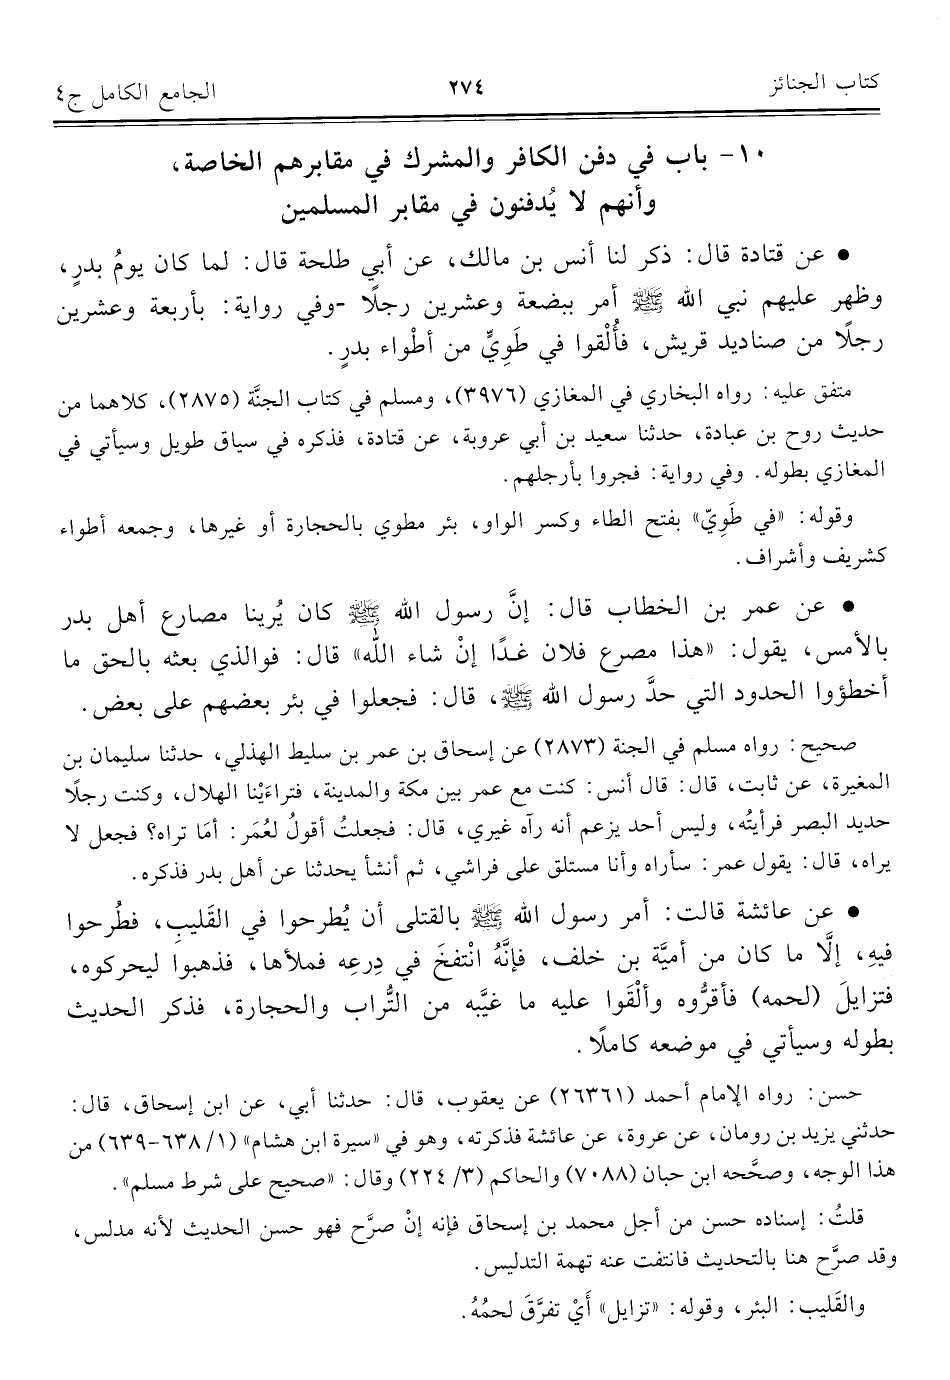 كتاب الجنائز ٢٧٤ الجامع الكامل ج٤
١٠- باب في دفن الكافر والمشرك في مقابرهم الخاصة،
وأنهم لا يُدفنون في مقابر المسلمين
● عن قتادة قال: ذكر لنا أنس بن مالك، عن أبي طلحة قال: لما كان يومُ بدرٍ،
وظهر عليهم نبي الله ﷺ أمر ببضعة وعشرين رجلًا -وفي رواية: بأربعة وعشرين
رجلًا من صناديد قريش، فأُلْقوا في طَوِيٍّ من أطواء بدرٍ.
متفق عليه: رواه البخاري في المغازي (٣٩٧٦)، ومسلم في كتاب الجنَّة (٢٨٧٥)، كلاهما من
حديث روح بن عبادة، حدثنا سعيد بن أبي عروبة، عن قتادة، فذكره في سياق طويل وسيأتي في
المغازي بطوله. وفي رواية: فجروا بأرجلهم.
وقوله: «في طَوِيّ» بفتح الطاء وكسر الواو، بئر مطوي بالحجارة أو غيرها، وجمعه أطواء
كشريف وأشراف.
● عن عمر بن الخطاب قال: إنَّ رسول الله ﷺ كان يُرينا مصارع أهل بدر
بالأمس، يقول: «هذا مصرع فلان غدًا إنْ شاء الله» قال: فوالذي بعثه بالحق ما
أخطؤوا الحدود التي حدَّ رسول الله ﷺ، قال: فجعلوا في بئر بعضهم على بعض.
صحيح: رواه مسلم في الجنة (٢٨٧٣) عن إسحاق بن عمر بن سليط الهذلي، حدثنا سليمان بن
المغيرة، عن ثابت، قال: قال أنس: كنت مع عمر بين مكة والمدينة، فتراءَيْنا الهلال، وكنت رجلًا
حديد البصر فرأيتُه، وليس أحد يزعم أنه رآه غيري، قال: فجعلتُ أقولُ لعُمَر: أمَا تراه؟ فجعل لا
يراه، قال: يقول عمر: سأراه وأنا مستلق على فراشي، ثم أنشأ يحدثنا عن أهل بدر فذكره.
● عن عائشة قالت: أمر رسول الله ﷺ بالقتلى أن يُطرحوا في القَليبِ، فطُرحوا
فيهِ، إلَّا ما كان من أميَّة بن خلف، فإنَّهُ انْتفخَ في دِرعِه فملأها، فذهبوا ليحركوه،
فتزايلَ (لحمه) فأقرُّوه وألْقَوا عليه ما غيَّبه من التُّراب والحجارة، فذكر الحديث
بطوله وسيأتي في موضعه كاملًا.
حسن: رواه الإمام أحمد (٢٦٣٦١) عن يعقوب، قال: حدثنا أبي، عن ابن إسحاق، قال:
حدثني يزيد بن رومان، عن عروة، عن عائشة فذكرته، وهو في «سيرة ابن هشام» (١/ ٦٣٨-٦٣٩) من
هذا الوجه، وصحَّحه ابن حبان (٧٠٨٨) والحاكم (٣/ ٢٢٤) وقال: «صحيح على شرط مسلم».
قلتُ: إسناده حسن من أجل محمد بن إسحاق فإنه إنْ صرَّح فهو حسن الحديث لأنه مدلس،
وقد صرَّح هنا بالتحديث فانتفت عنه تهمة التدليس.
والقَليب: البئر، وقوله: «تزايل» أَيْ تفرَّقَ لحمُهُ.